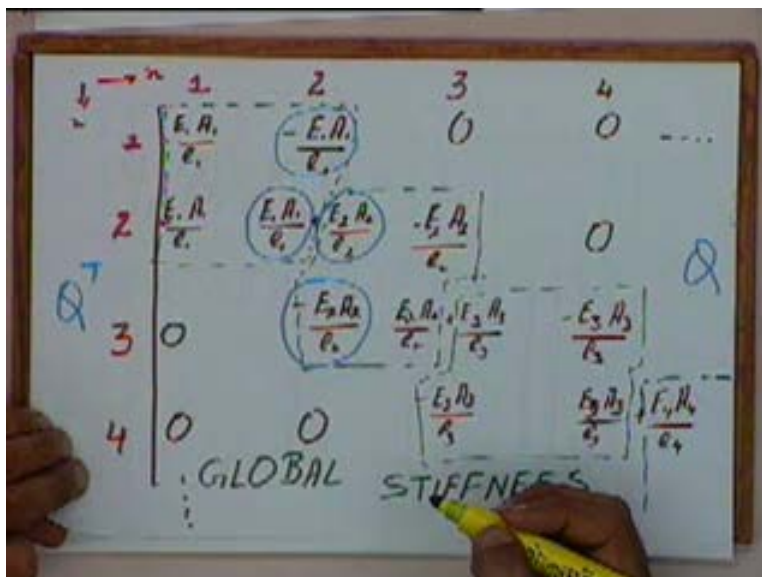 1 2 3 4
1 E₁A₁/l₁ - E₁A₁/l₁ 0 0 ....
2 E₁A₁/l₁ E₁A₁/l₁ + E₂A₂/l₂ - E₂A₂/l₂ 0
Qᵀ Q
3 0 - E₂A₂/l₂ E₂A₂/l₂ + E₃A₃/l₃ - E₃A₃/l₃
4 0 0 - E₃A₃/l₃ E₃A₃/l₃ + E₄A₄/l₄
GLOBAL STIFFNESS